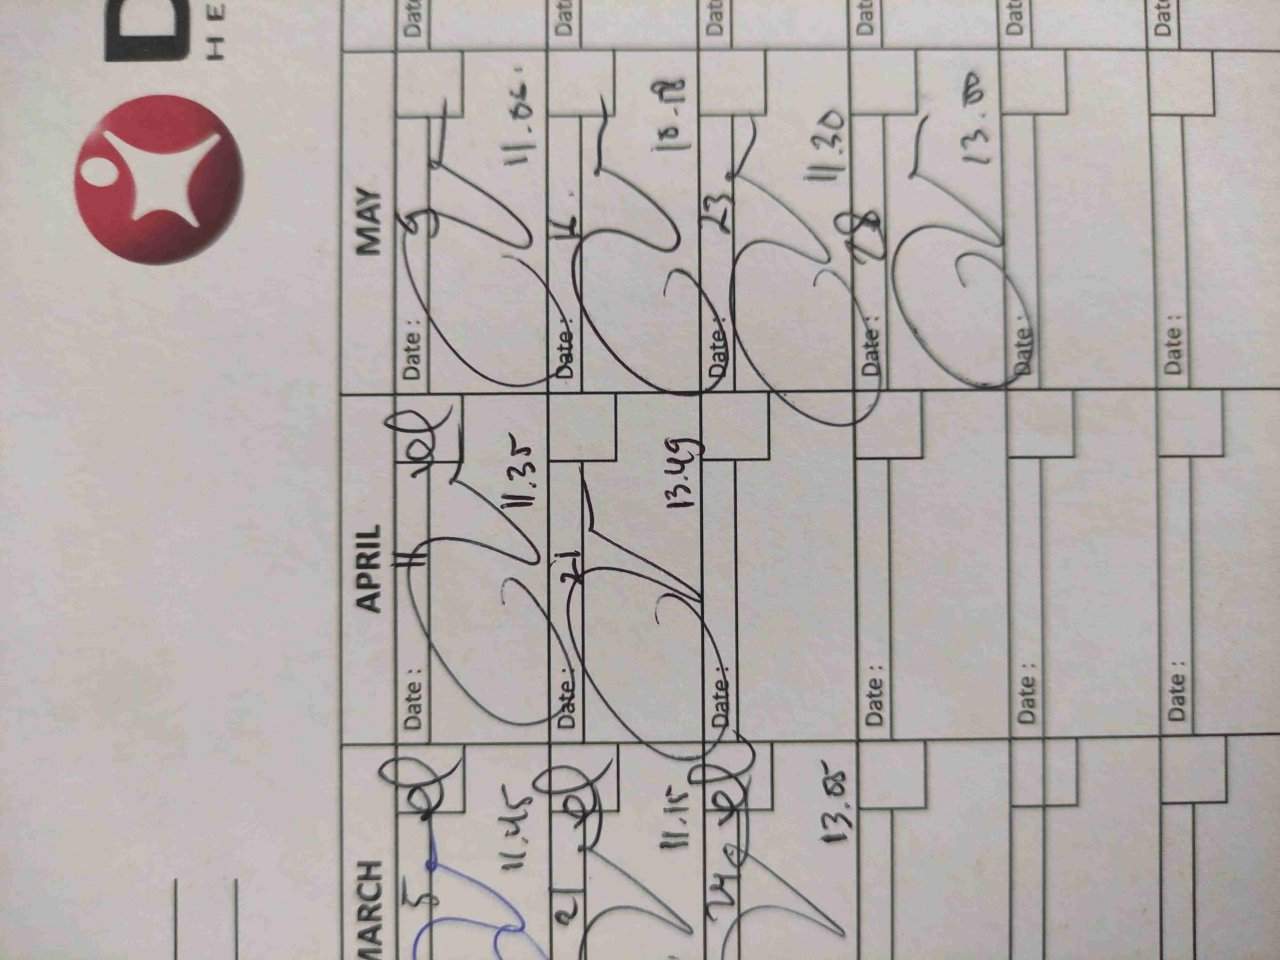 D
HE
MARCH
APRIL
MAY
5
Date: 11
Date: 9
Date
11.45
11.35
11.06.
21
Date: 21
Date: 16
Date
11.15
13.49
10.18
24
Date:
Date: 23
Date
13.55
11.30
Date:
Date: 28
Date
13.00
Date:
Date:
Date
Date:
Date:
Date